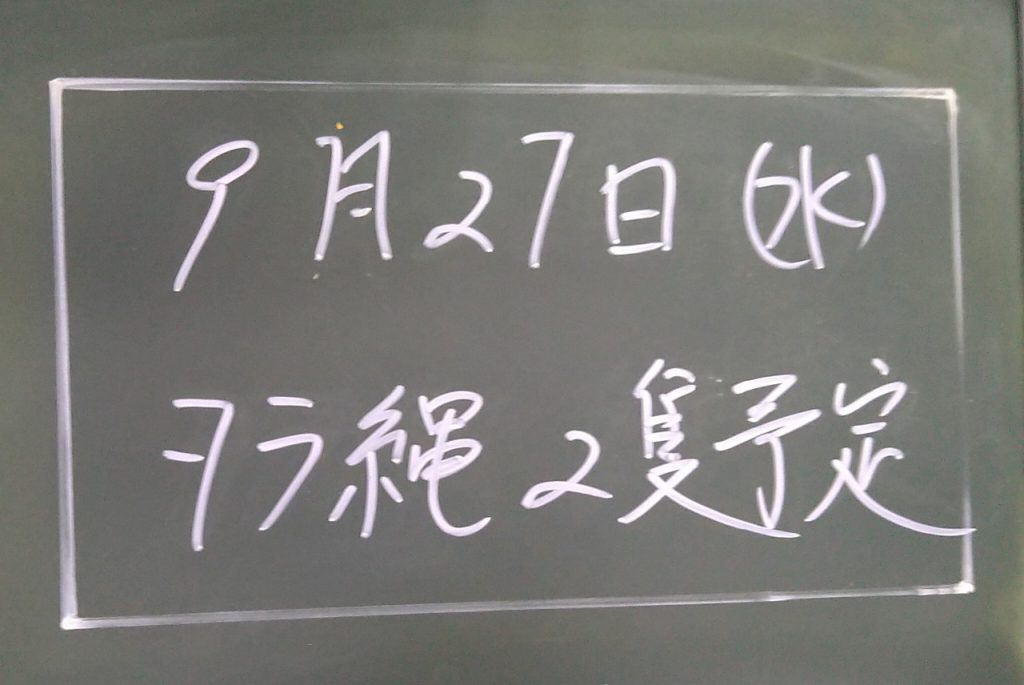 9月27日(水)
タラ縄 2隻予定